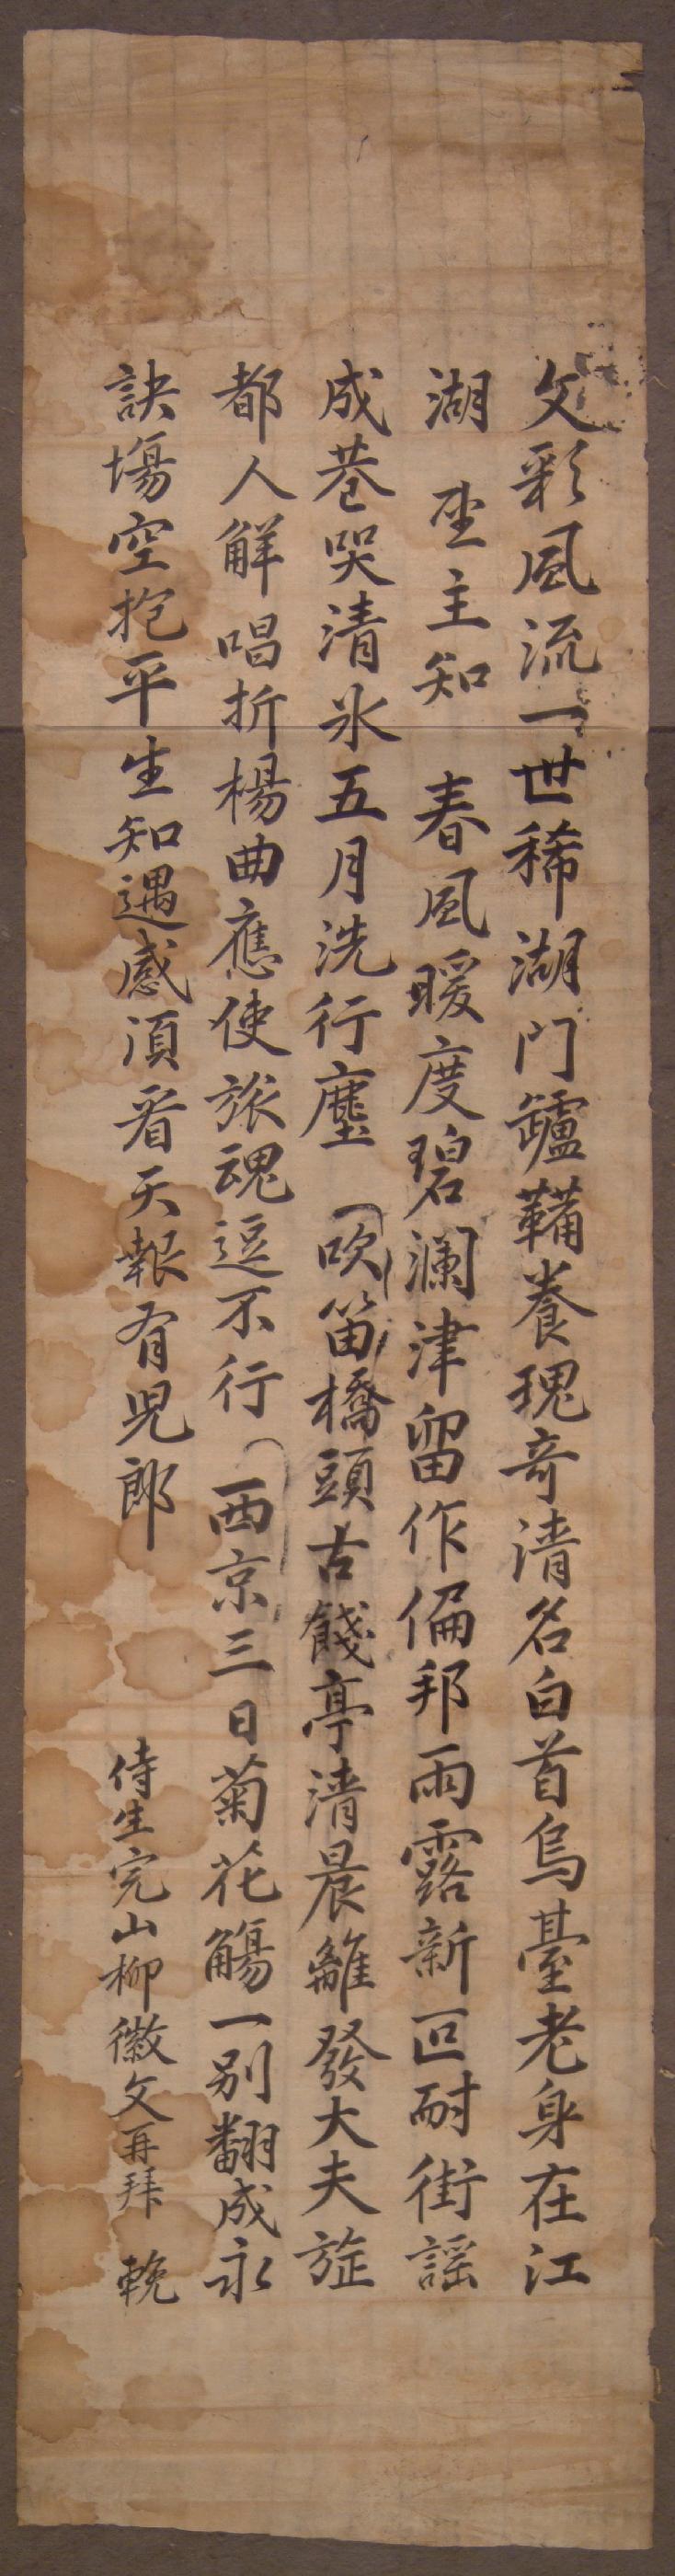 文彩風流一世稀湖門鑪鞴養瑰奇淸名白首烏臺老身在江
湖 聖主知 春風暖度碧瀾津留作偏邦雨露新叵耐街謠
成巷哭清氷五月洗行塵 吹笛橋頭古餞亭淸晨離發大夫旌
都人解唱折楊曲應使旅魂逗不行 西京三日菊花觴一別翻成永
訣塲空抱平生知遇感須看天報有兒郞
侍生完山柳徽文再拜 輓